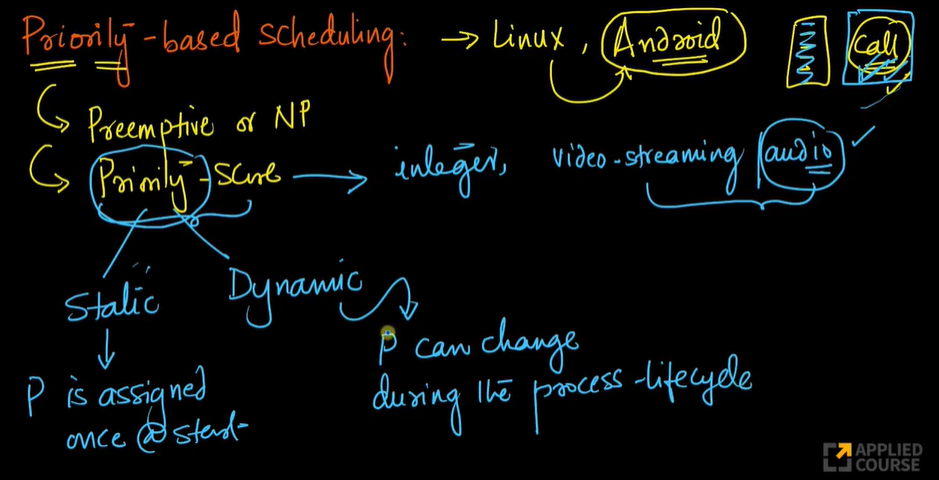 Priority-based scheduling: → Linux, Android
call
Preemptive or NP
Priority-score → integer, video-streaming audio ✓
Static
Dynamic
P is assigned
once @start
P can change
during the process-lifecycle
APPLIED
COURSE